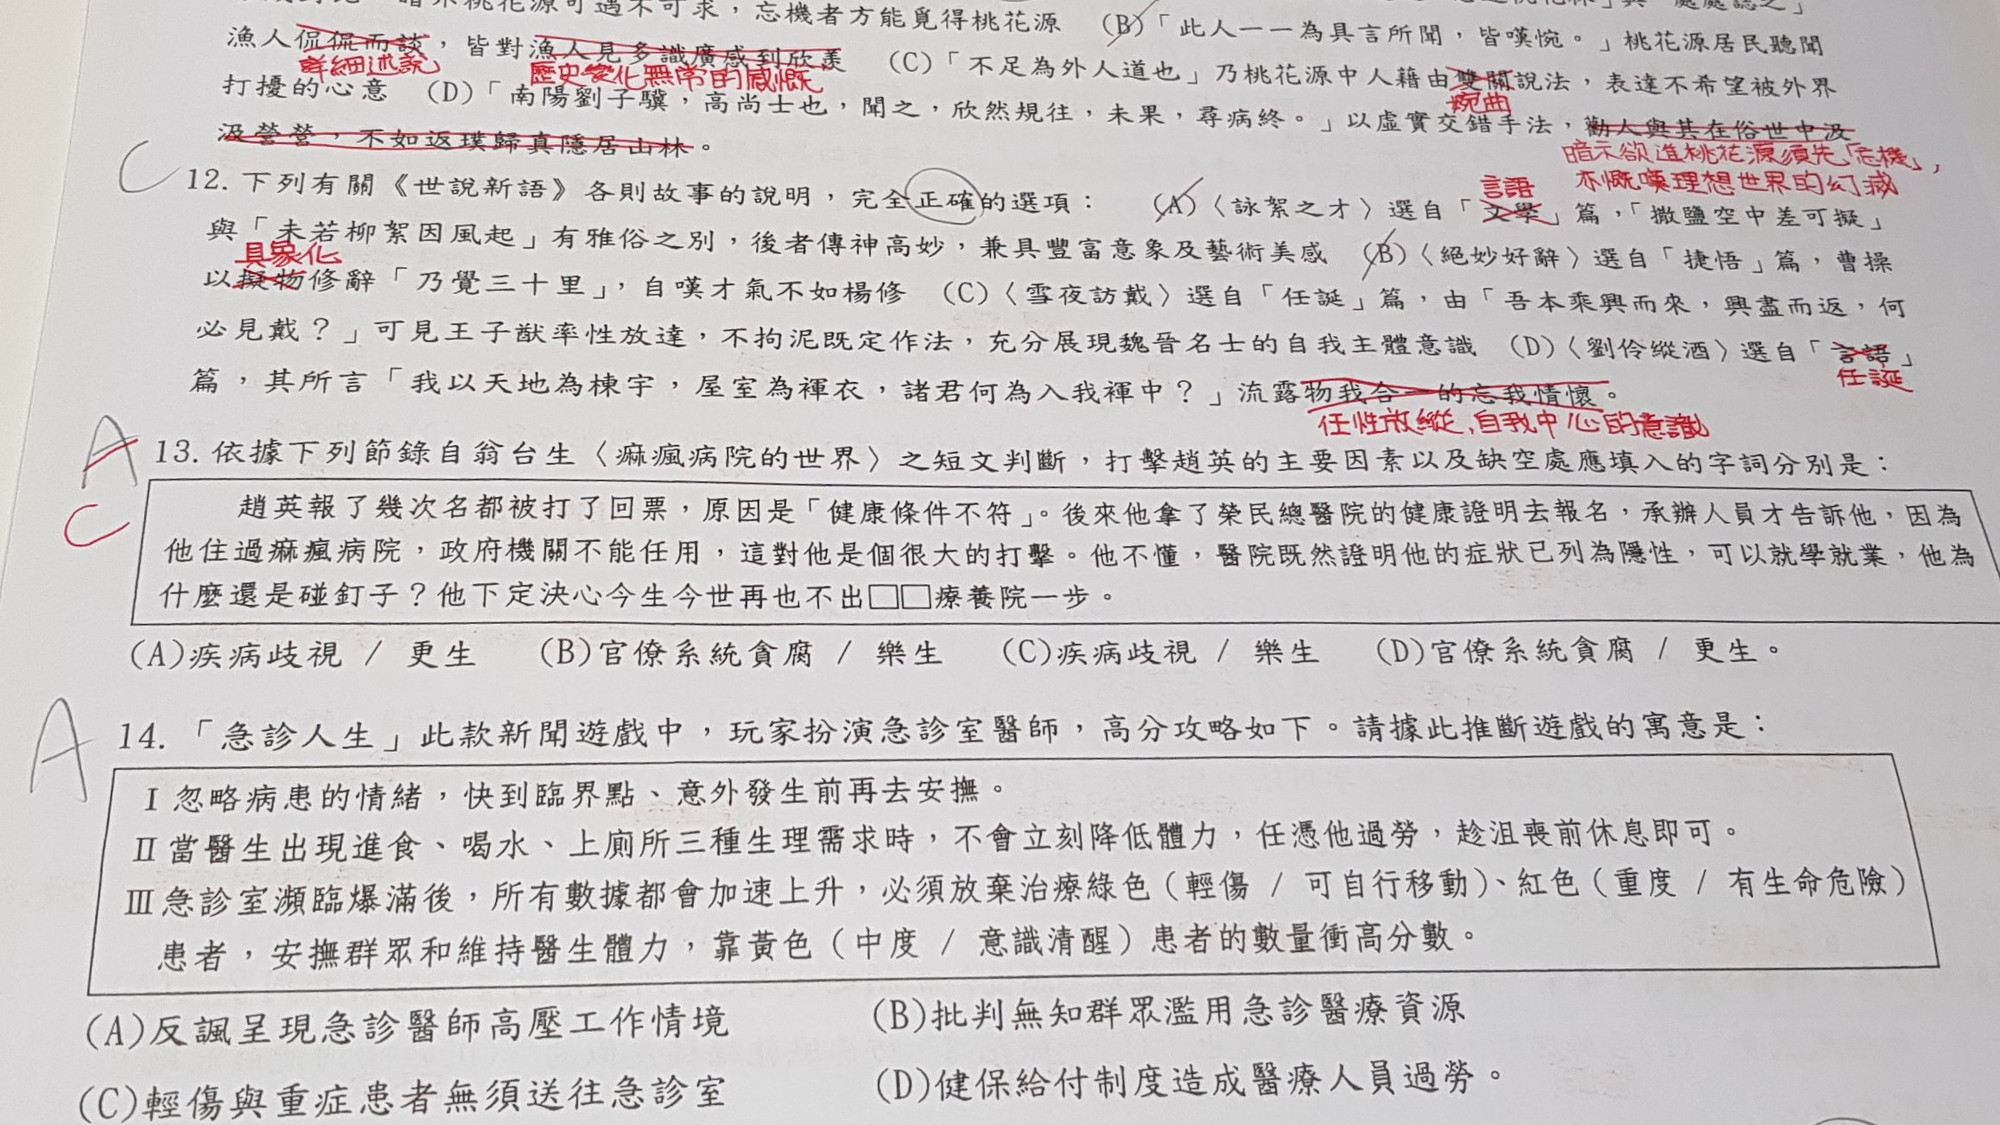 桃花源可遇不可求，忘機者方能覓得桃花源 (B)「此人一一為具言所聞，皆嘆惋。」桃花源居民聽聞
漁人侃侃而談，皆對漁人見多識廣感到欣羨 (C)「不足為外人道也」乃桃花源中人藉由雙關說法，表達不希望被外界
詳細述說 歷史變化無常的感慨
打擾的心意 (D)「南陽劉子驥，高尚士也，聞之，欣然規往，未果，尋病終。」以虛實交錯手法，勸人與其在俗世中汲
婉曲
汲營營，不如返璞歸真隱居山林。
暗示欲進桃花源須先「忘機」，
亦慨嘆理想世界的幻滅
C
12. 下列有關《世說新語》各則故事的說明，完全正確的選項： (A)〈詠絮之才〉選自「文學」篇，「撒鹽空中差可擬」
言語
與「未若柳絮因風起」有雅俗之別，後者傳神高妙，兼具豐富意象及藝術美感 (B)〈絕妙好辭〉選自「捷悟」篇，曹操
具象化
以擬物修辭「乃覺三十里」，自嘆才氣不如楊修 (C)〈雪夜訪戴〉選自「任誕」篇，由「吾本乘興而來，興盡而返，何
必見戴？」可見王子猷率性放達，不拘泥既定作法，充分展現魏晉名士的自我主體意識 (D)〈劉伶縱酒〉選自「言語」
任誕
篇，其所言「我以天地為棟宇，屋室為褌衣，諸君何為入我褌中？」流露物我合一的忘我情懷。
任性放縱、自我中心的意識
A
C
13. 依據下列節錄自翁台生〈痲瘋病院的世界〉之短文判斷，打擊趙英的主要因素以及缺空處應填入的字詞分別是：
趙英報了幾次名都被打了回票，原因是「健康條件不符」。後來他拿了榮民總醫院的健康證明去報名，承辦人員才告訴他，因為
他住過痲瘋病院，政府機關不能任用，這對他是個很大的打擊。他不懂，醫院既然證明他的症狀已列為隱性，可以就學就業，他為
什麼還是碰釘子？他下定決心今生今世再也不出□□療養院一步。
(A)疾病歧視 / 更生 (B)官僚系統貪腐 / 樂生 (C)疾病歧視 / 樂生 (D)官僚系統貪腐 / 更生。
A
14. 「急診人生」此款新聞遊戲中，玩家扮演急診室醫師，高分攻略如下。請據此推斷遊戲的寓意是：
Ⅰ忽略病患的情緒，快到臨界點、意外發生前再去安撫。
Ⅱ當醫生出現進食、喝水、上廁所三種生理需求時，不會立刻降低體力，任憑他過勞，趁沮喪前休息即可。
Ⅲ急診室瀕臨爆滿後，所有數據都會加速上升，必須放棄治療綠色（輕傷 / 可自行移動）、紅色（重度 / 有生命危險）
患者，安撫群眾和維持醫生體力，靠黃色（中度 / 意識清醒）患者的數量衝高分數。
(A)反諷呈現急診醫師高壓工作情境 (B)批判無知群眾濫用急診醫療資源
(C)輕傷與重症患者無須送往急診室 (D)健保給付制度造成醫療人員過勞。